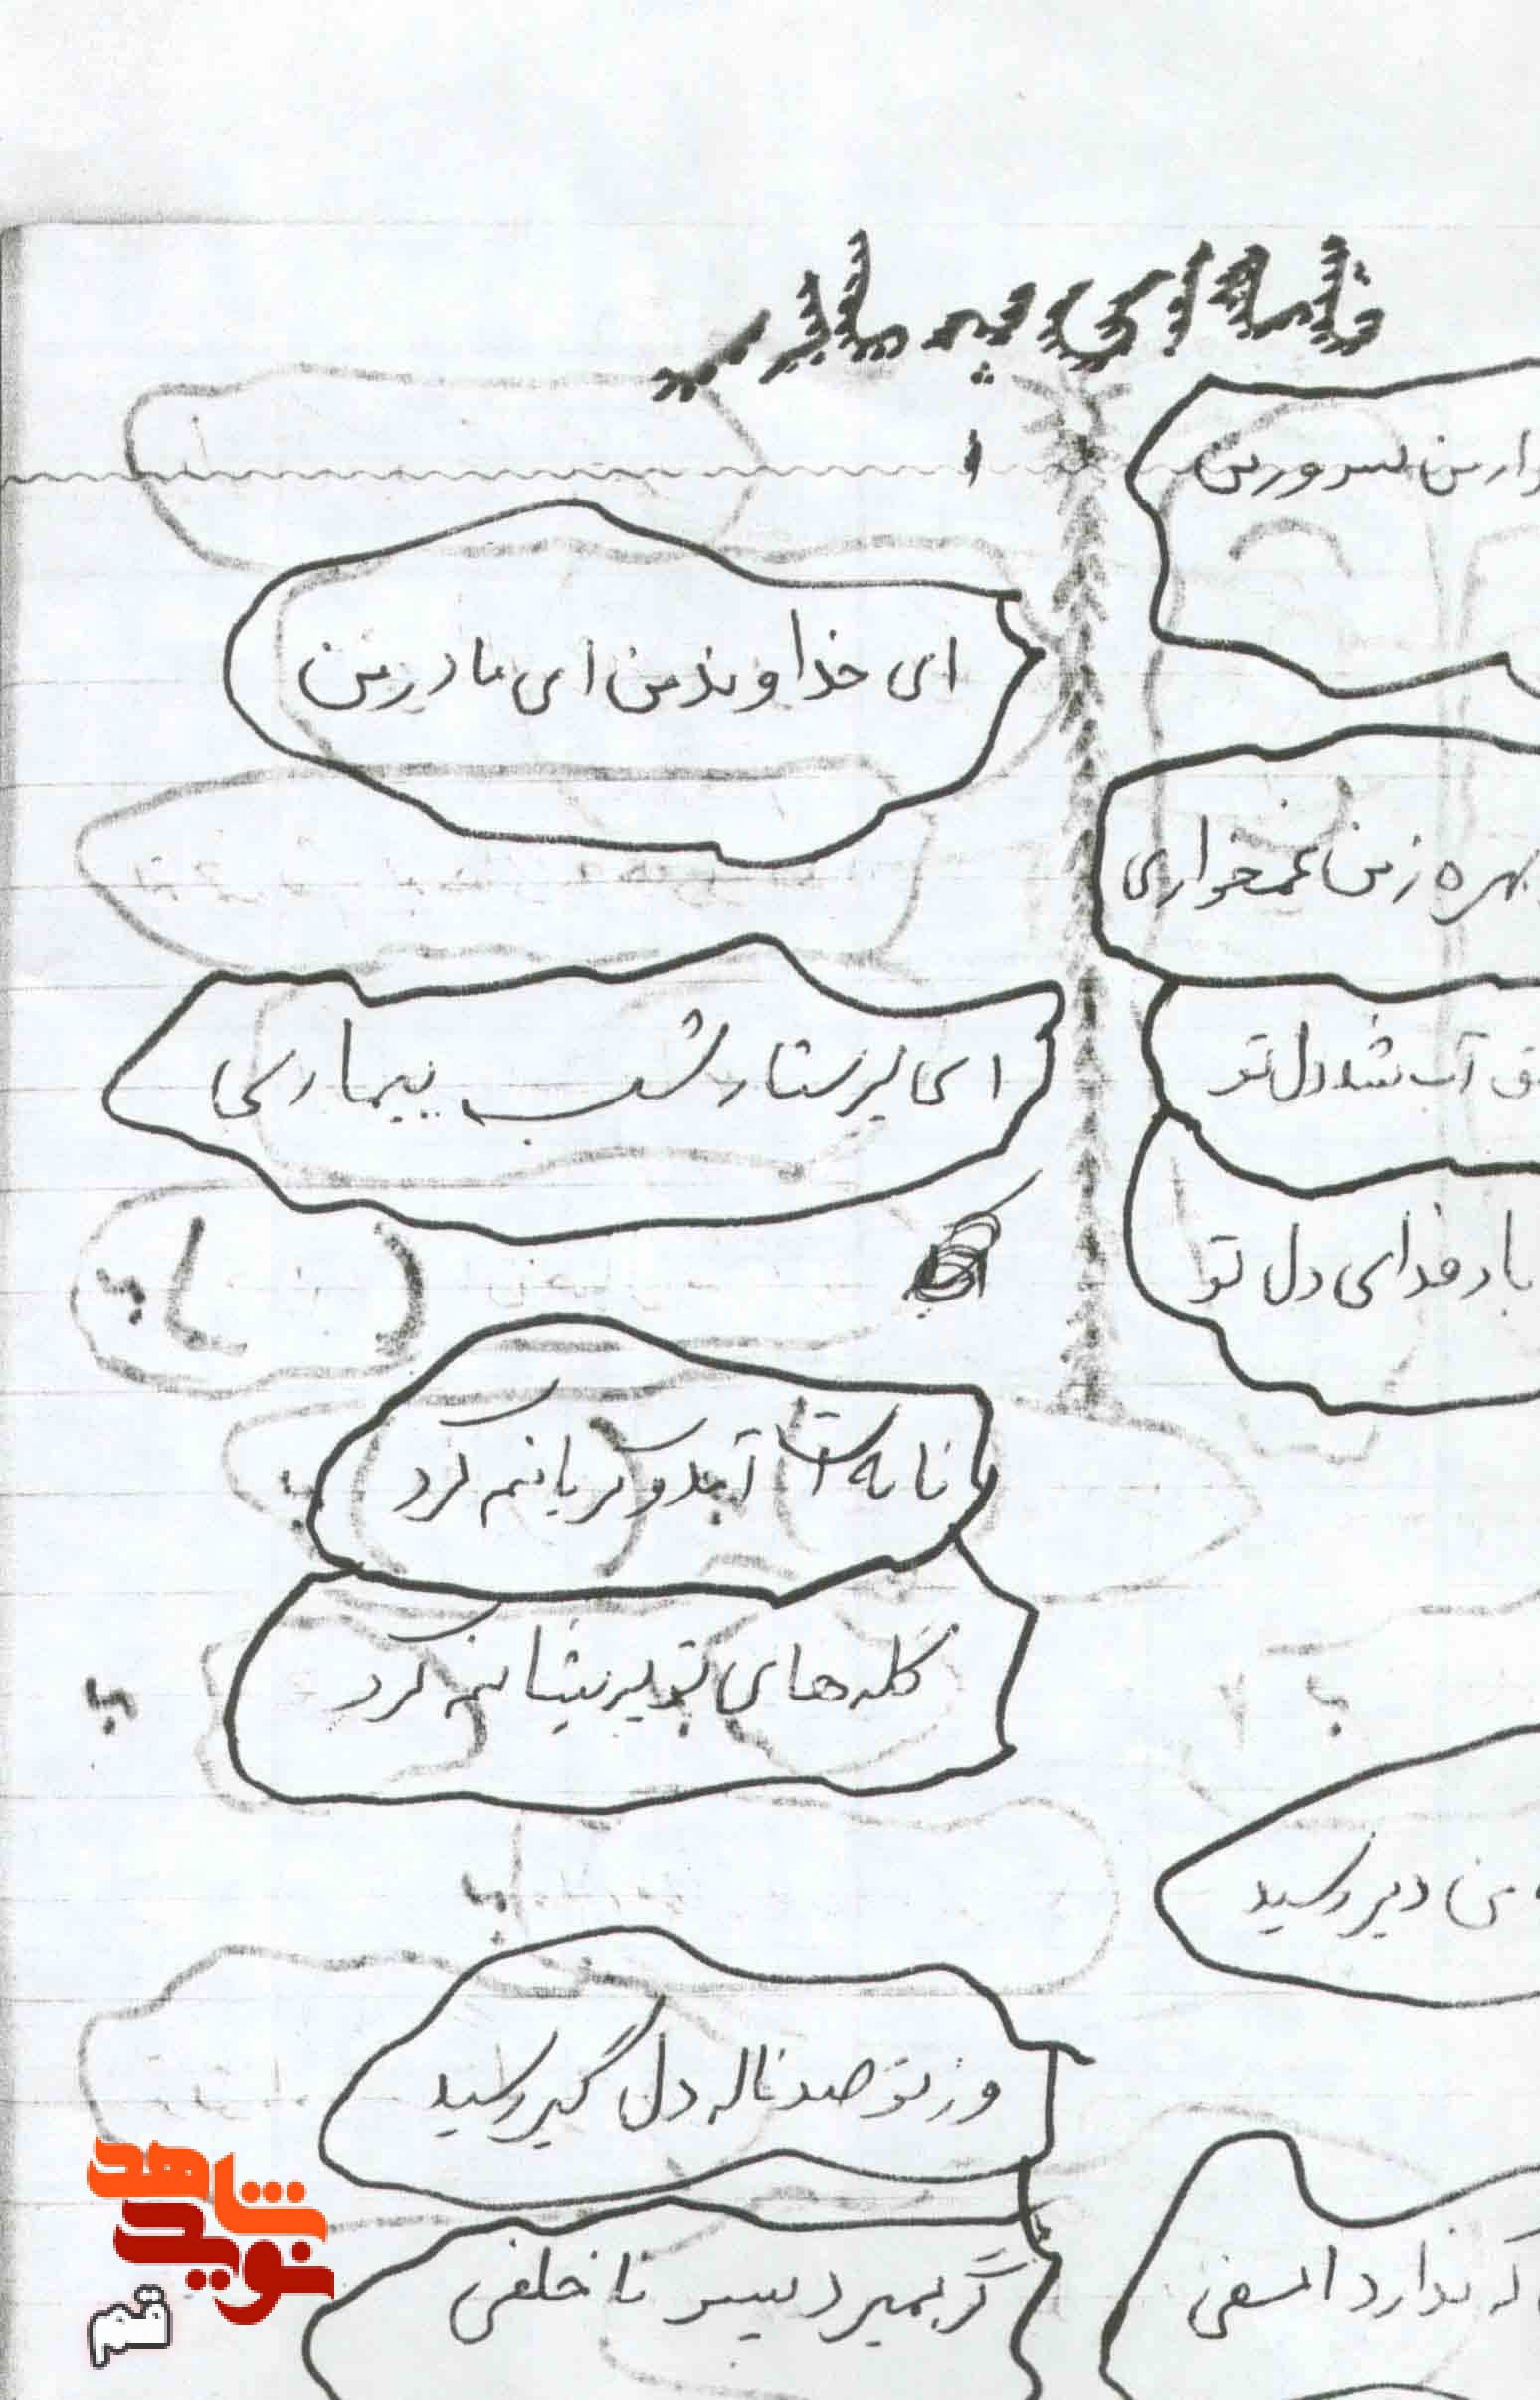 نامه ای به مادر
وار من سرور من
ای خداوند من ای مادر من
بهره ز من غمخواری
ای پرستار شب بیماری
آب شد دل تو
باد فدای دل تو
نامه ات آمد و گریانم کرد
گله های تو پریشانم کرد
من دیر رسید
وز تو صد ناله دل گیر رسید
که ندارد اسفی
گر بمیرد پسر نا خلفی
شاهد
نوید
قم